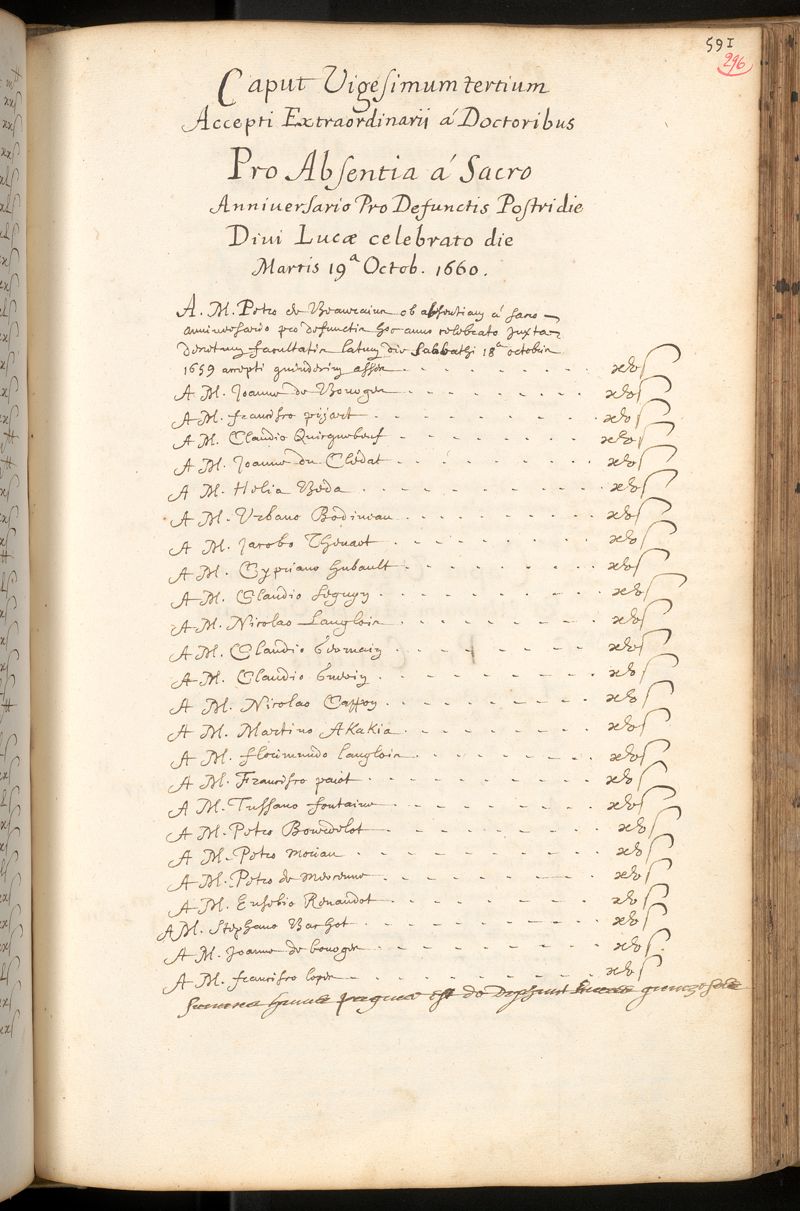 591
296
Caput Vigesimum tertium
Accepti Extraordinarii á Doctoribus
Pro Absentia á Sacro
Anniversario Pro Defunctis Postridie
Divi Lucæ celebrato die
Martis 19ª Octob. 1660.
A. M. Petro de Beaurains ob absentiam á sacro
anniversario pro defunctis hoc anno celebrato juxta
decretum facultatis latum die Sabbathi 18ª octobris
1659 accepti quindecim asses xvs
A M. Joanne de Bourges xvs
A M. francisco pijart xvs
A M. Claudio Quiquebeuf xvs
A M. Joanne du Clédat xvs
A M. Helia Béda xvs
A M. Urbano Bodineau xvs
A M. Jacobo Thevart xvs
A M. Cypriano hubault xvs
A M. Claudio Seguyn xvs
A M. Nicolao Langlois xvs
A M. Claudio Germain xvs
A M. Claudio xvs
A M. Nicolao Cappon xvs
A M. Martino AKaKia xvs
A M. florimundo langlois xvs
A M. Francisco paiot xvs
A M. Tussano fontaine xvs
A M. Petro Bourdelot xvs
A M. Petro morian xvs
A M. Petro de mercenne xvs
A M. Eusebio Renaudot xvs
A M. Stephano Bachot xvs
A M. Joanne de bourges xvs
A M. francisco lopes xvs
Summa huius paginæ est de